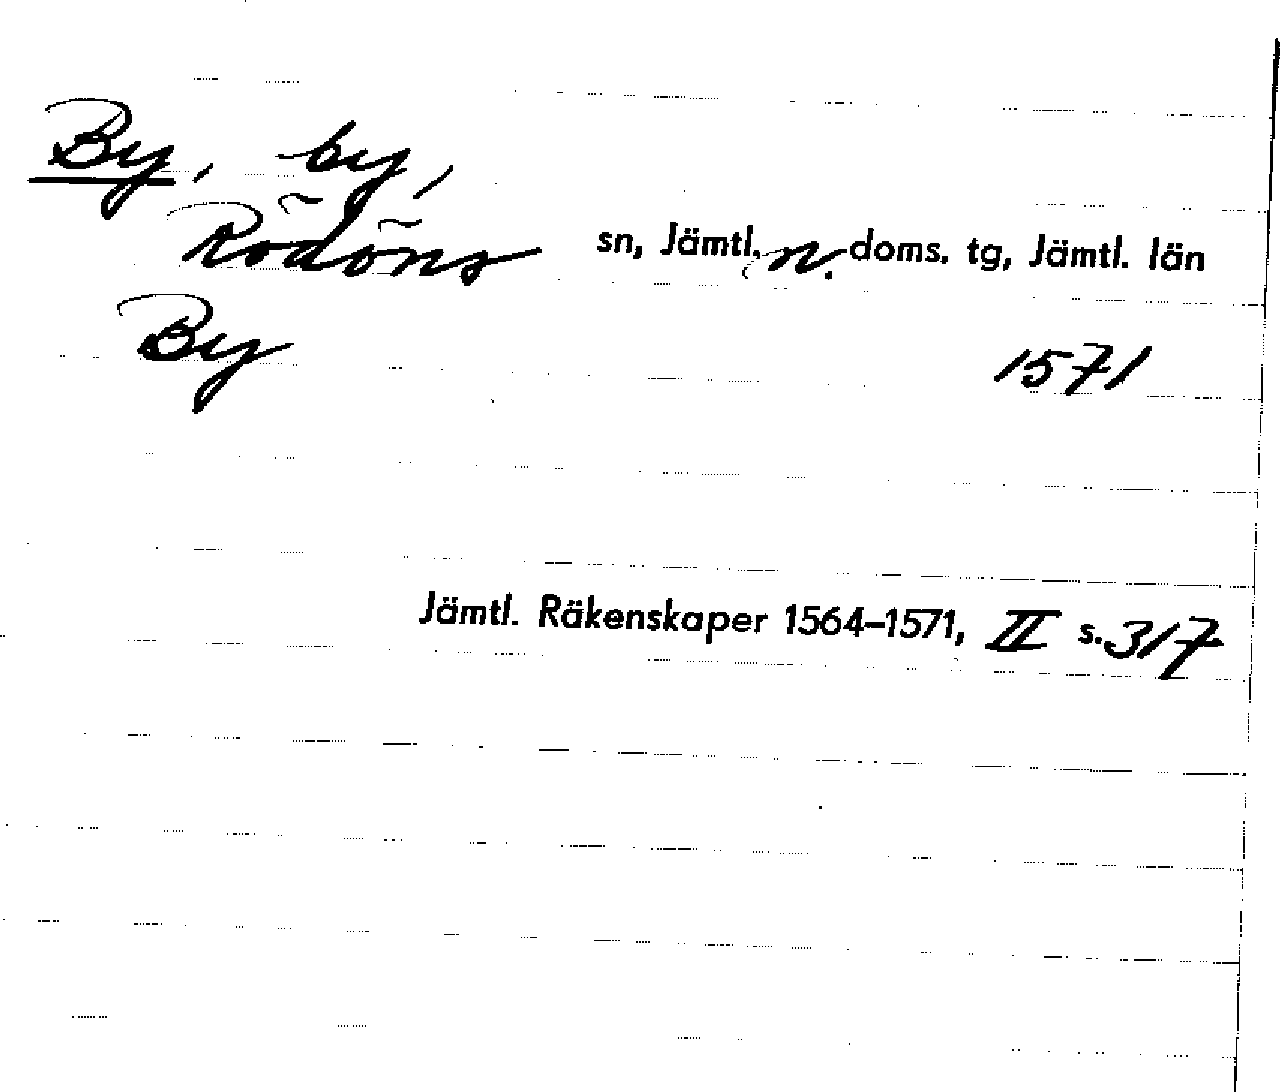 By, by,
Rödöns sn, Jämtl. n. doms. tg, Jämtl. län
By 1571
Jämtl. Räkenskaper 1564–1571, II s. 317